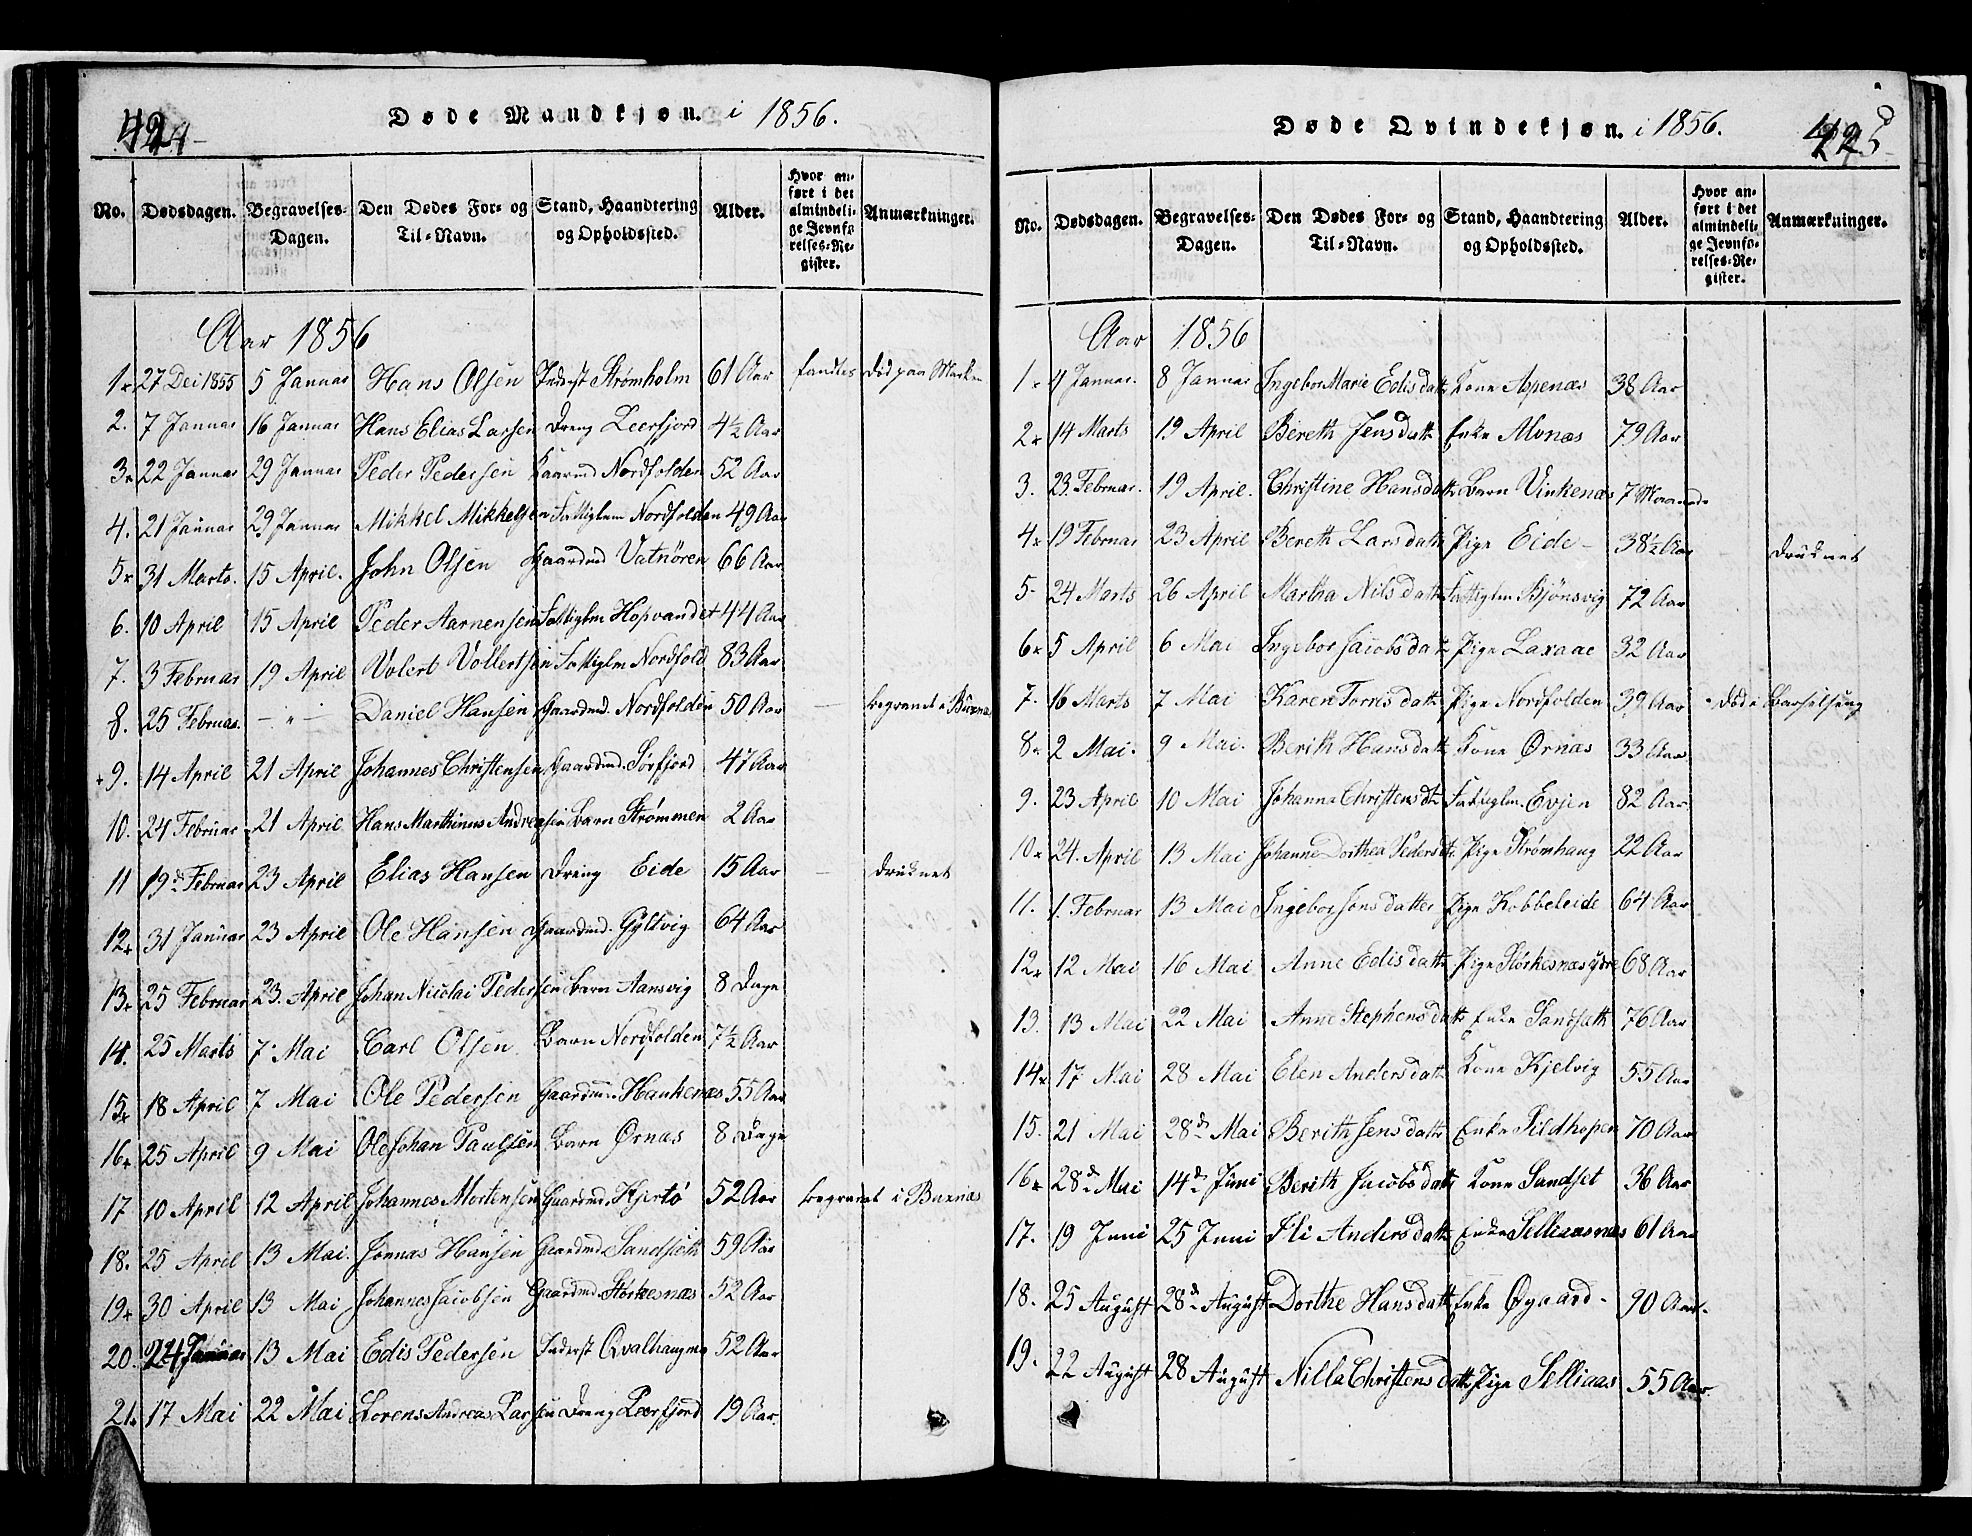 424
Døde Mandkjøn. i 1856.
No. Dødsdagen. Begravelses-Dagen. Den Dødes For- og Til-Navn. Stand, Haandtering og Opholdssted. Alder. Hvor anført i det almindelige Jevnførelses-Register. Anmærkninger.
Aar 1856
1 27 Dei 1855 5 Januar Hans Olsen Inderst Strømholm 61 Aar fandtes død paa Marken
2. 7 Januar 16 Januar Hans Elias Larsen Dreng Leerfjord 4½ Aar
3 22 Januar 29 Januar Peder Pedersen Gaardmd Nordfolden 52 Aar
4. 21 Januar 29 Januar Mikkel Mikkelsen Fattiglm Nordfolden 49 Aar
5 31 Marts. 15 April. John Olsen Gaardmd Vatnören 66 Aar
6. 10 April 15 April Peder Aarnensen Fattiglm Hopvandet 44 Aar
7. 3 Februar 19 April Volert Vollertsen Fattiglm Nordfold 83 Aar
8. 25 Februar. — " — Daniel Hansen Gaardmd. Nordfolden 50 Aar — begravet i Buxnæs
+ 9. 14 April 21 April Johannes Christensen Gaardmd. Sørfjord 47 Aar
10. 24 Februar 21 April Hans Marthinus Andreasen Barn Strømmen 2 Aar
11 19d Februar 23 April Elias Hansen Dreng Eide 15 Aar — druknet
12 31 Januar 23 April Ole Hansen Gaardmd. Gyltvig 64 Aar
13 25 Februar 23. April Johan Nicolai Pedersen Barn Aansvig 8 Dage
14. 25 Marts 7 Mai Carl Olsen Barn Nordfolden 7½ Aar
15 18 April 7 Mai Ole Pedersen Gaardmd. Haukenæs 55 Aar
16 25 April 9 Mai Ole Johan Paulsen Barn Ørnæs 8 Dage
17 10 April 12 April Johannes Mortensen Gaardmd. Hjertö 52 Aar begravet i Buxnæs
18. 25 April 13 Mai. Jonnas Hansen Gaardmd Sandsæth 59 Aar
19 30 April 13 Mai Johannes Jacobsen Gaardmd. Størkesnæs 52 Aar
20. 24 Januar 13 Mai Edis Pedersen Inderst Qvalhaugmo 52 Aar
21. 17 Mai 22 Mai Lorens Andreas Larsen Dreng Leerfjord 19 Aar.
425
Døde Qvindekjøn. i 1856.
No. Dødsdagen. Begravelses-Dagen. Den Dødes For- og Til-Navn. Stand, Haandtering og Opholdssted. Alder. Hvor anført i det almindelige Jevnførelses-Register. Anmærkninger.
Aar 1856
1 4 Januar. 8 Januar Ingebor Marie Edisdatt Kone Aspenæs 38 Aar
2 14 Marts 19 April Bereth Jensdatt Enke Alvnæs 79 Aar
3. 23. Februar. 19 April. Christine Hansdatt Barn Vinkenæs 7 Maaneder
4 19 Februar 23 April Bereth Larsdatt Pige Eide – 38½ Aar druknet
5 24 Marts 26 April Martha Nilsdatt Fattiglm Bjönsvig 72 Aar
6 5 April 6 Mai Ingebor Jacobsdatt Pige Laxaae 32 Aar
7. 16 Marts 7 Mai Karen Torrisdatt Pige Nordfolden 39 Aar død i Barselseng
8 2 Mai. 9 Mai. Berith Hansdatt Kone Ørnæs 33 Aar
9. 23 April 10 Mai Johanna Christensdt Fattiglm. Evjen 82 Aar
10 24. April 13 Mai Johanne Dorthea Pedersdt. Pige Strømhaug 22 Aar
11. 1. Februar 13 Mai Ingebor Jonsdatter Pige Kobbeleide 64 Aar
12 12 Mai 16 Mai Anne Edisdatt Pige Størkesnæs ydre 68 Aar
13. 13 Mai 22 Mai Anne Stephensdatt Enke Sandsæth 76 Aar
14 17 Mai 28 Mai Elen Andersdatt Kone Kjelvig 55 Aar
15. 21 Mai 28d Mai Berith Jensdatt Enke Sildhopen 70 Aar
16 28d Mai 14d Juni Berith Jacobsdatt Kone Sandset 36 Aar
17. 19 Juni 25 Juni Sli Andersdatt Enke Selliaasnæs 61 Aar
18. 25 August 28d August Dorthe Hansdatt Enke Øgaard – 90 Aar.
19. 22 August 28 August Nilla Christensdatt Pige Selliaas 55 Aar.